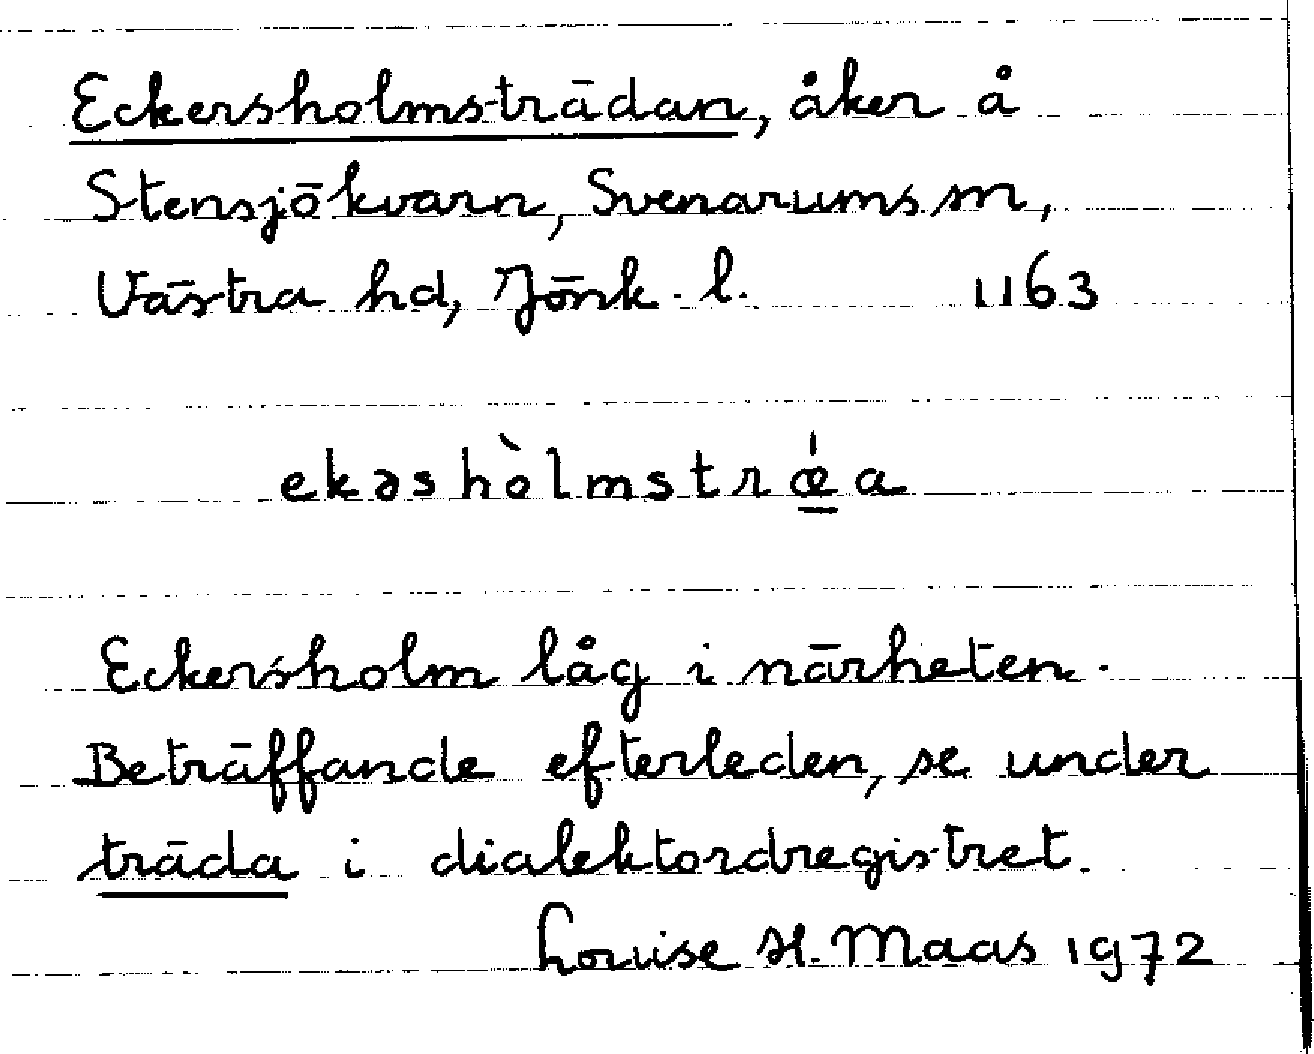 Eckersholmsträdan, åker å
Stensjökvarn, Svenarums sn,
Västra hd, Jönk. l. 1163
ekəshòlmstrœ́a
Eckersholm låg i närheten.
Beträffande efterleden, se under
träda i dialektordregistret.
Louise H. Maas 1972